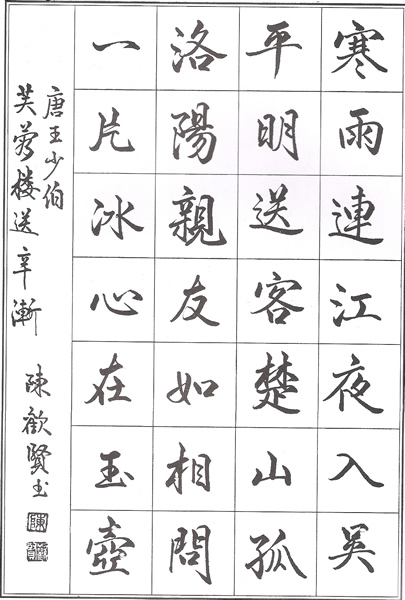 寒雨連江夜入吳
平明送客楚山孤
洛陽親友如相問
一片冰心在玉壺
唐王少伯
芙蓉楼送辛漸 陳歡賢書